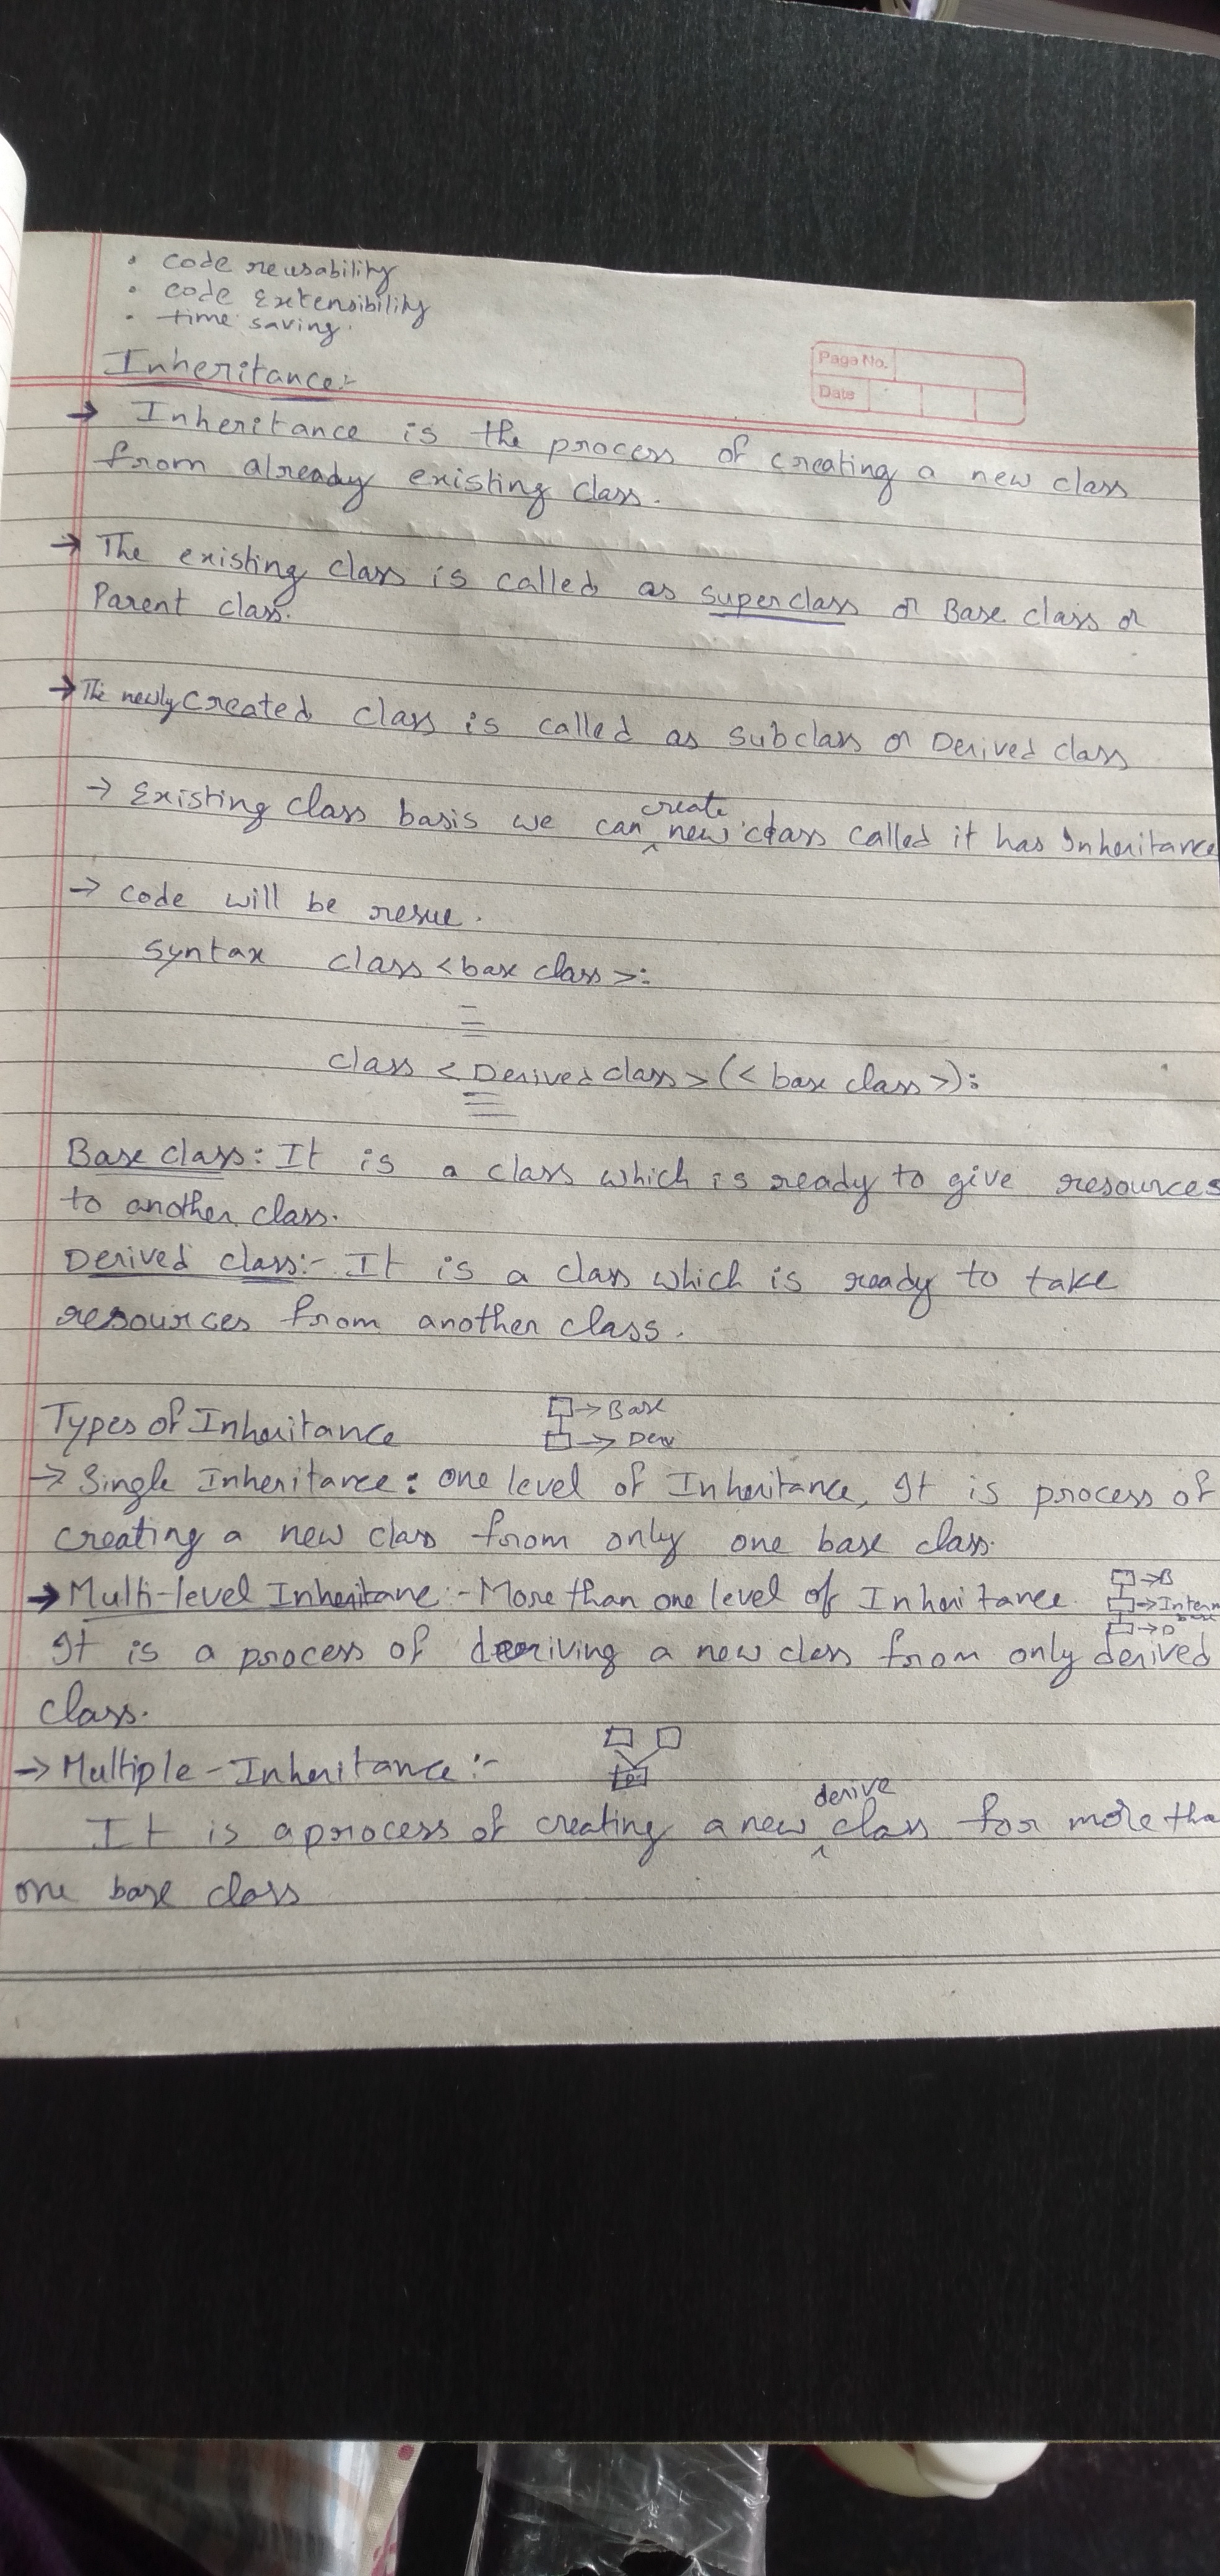 • code reusability
• code Extensibility
• time saving.
Inheritance:-
Page No.
Date
→ Inheritance is the process of creating a new class
from already existing class.
→ The existing class is called as superclass or Base class or
Parent class.
→ The newly created class is called as subclass or Derived class
→ Existing class basis we can create new class called it has Inheritance
→ code will be resue.
Syntax class <base class>:
class <Derived class>(<base class>):
Base class: It is a class which is ready to give resources
to another class.
Derived class:- It is a class which is ready to take
resources from another class.
→ Base
Types of Inheritance
→ Derv
→ Single Inheritance: one level of Inheritance, It is process of
creating a new class from only one base class.
→ B
→ Multi-level Inheritane:- More than one level of Inheritance.
→ Interm
base
→ D
It is a process of deriving a new class from only derived
class.
→ Multiple-Inheritance:-
D
It is a process of creating a new derive class for more tha
one base class